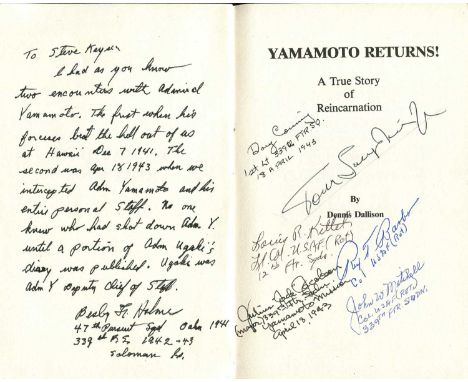 To Steve Keyser
I had as you know
two encounters with Admiral
Yamamoto. The first when his
forces beat the hell out of us
at Hawaii Dec 7 1941. The
second was Apr 18 1943 when we
intercepted Adm Yamamoto and his
entire personal Staff. No one
knew who had shot down Adm Y.
until a portion of Adm Ugaki's
diary was published. Ugaki was
Adm Y Deputy Chief of Staff.
Besby F. Holmes
47th Pursuit Sqd Oahu 1941
339th F.S. 1942-43
Solomon Is.
YAMAMOTO RETURNS!
A True Story
of
Reincarnation
Doug Canning
1st Lt 339th FTR SQ.
18 APRIL 1943
By
Dennis Dallison
Louis R. Kittel
Lt Col. USAF (Ret)
12th Ftr. Sqdn.
Roy
Col USAF (Ret)
Julius Jack Jacobson
(major) 339th Ftr Sqdn
Yamamoto Mission
April 18, 1943
John W Mitchell
Col USAF (RET)
339th FTR SQDN.